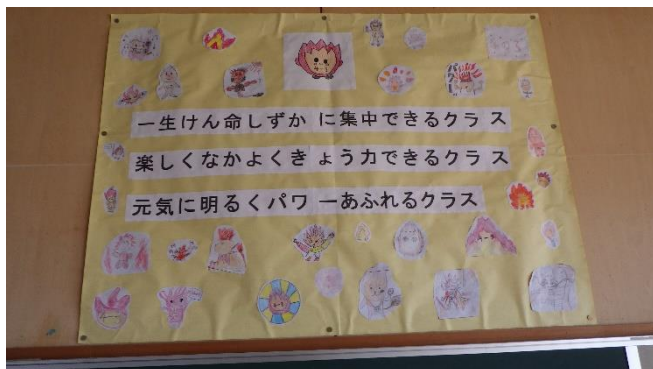 一生けん命しずかに集中できるクラス
楽しくなかよくきょう力できるクラス
元気に明るくパワーあふれるクラス